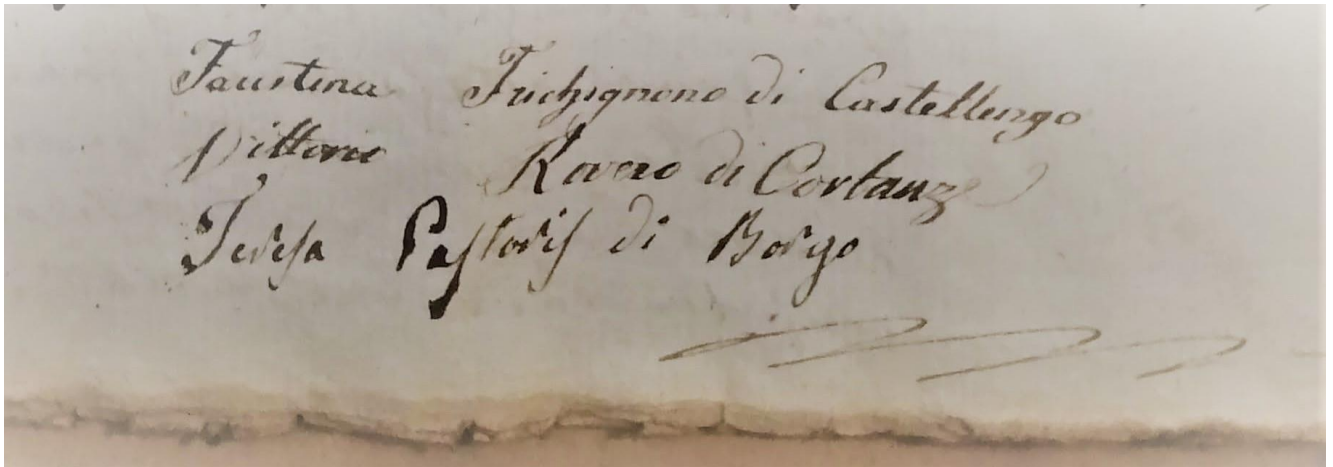 Faustina Frichignono di Castellengo
Vittorio Rovero di Cortanze
Teresa Pastoris di Borgo